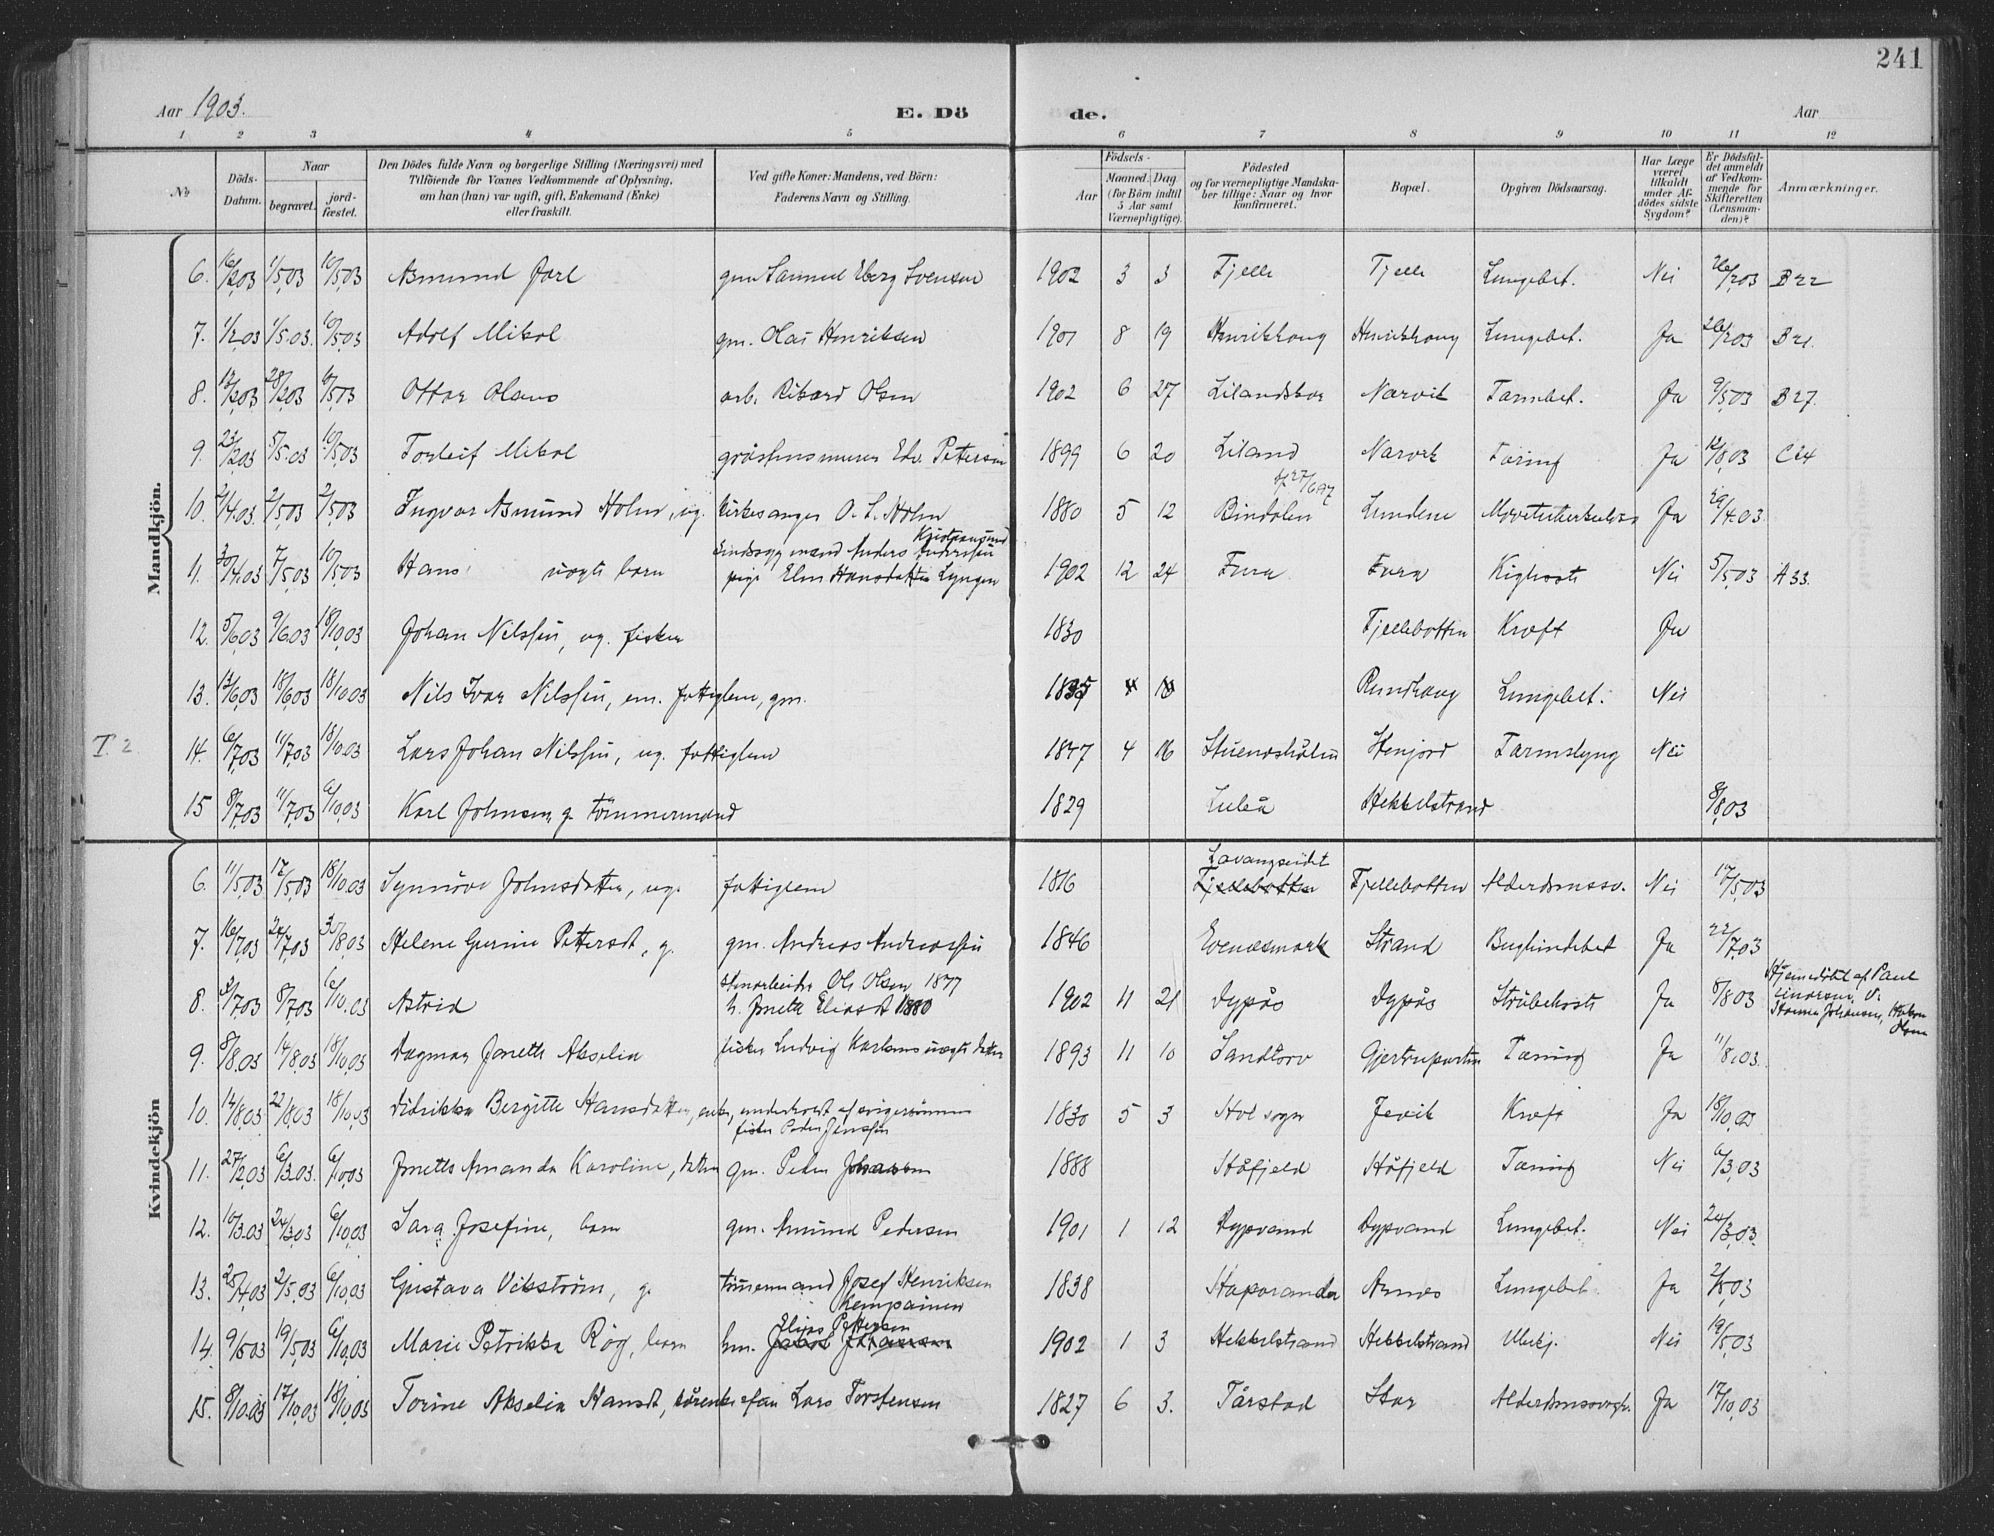 241
Aar 1903. E. Dö de. Aar
1 2 3 4 5 6 7 8 9 10 11 12
No Döds-Datum. Naar begravet. jord-fæstet. Den Dödes fulde Navn og borgerlige Stilling (Næringsvei) med Tilföiende for Voxnes Vedkommende af Oplysning, om han (hun) var ugift, gift, Enkemand (Enke) eller fraskilt. Ved gifte Koner: Mandens, ved Börn: Faderens Navn og Stilling. Födsels- Aar Maaned. Dag (for Börn indtil 5 Aar samt Værnepligtige). Födested og for værnepligtige Mandskaber tillige: Naar og hvor konfirmeret. Bopæl. Opgiven Dödsaarsag. Har Læge været tilkaldt under Afdödes sidste Sygdom? Er Dödsfaldet anmeldt af Vedkommende for Skifteretten (Lensmanden)? Anmærkninger.
Mandkjön.
6. 16/2 03 1/5 03 10/5 03 Asmund Jarl gm Samuel Eberg Svensen 1902 3 3 Fjelle Fjelle Lungebet. Nei 26/2 03 B 22
7. 1/2 03 1/5 03. 10/5 03 Adolf Mikal gm. Olai Henriksen 1901 8 19 Henrikhaug Henrikhaug Lungebet. Ja 26/2 03 B 21.
8. 12/2 03 28/2 03 10/5 03 Ottar Olaus arb. Rikard Olsen 1902 6 27 Lilandskar Narvik Tarmbet. Ja 9/5 03 B 27.
9. 23/2 03 5/5 03 10/5 03 Torleif Mikal gråstensmurer Edv. Pettersen 1899 6 20 Liland Narvik Tæring Ja 12/8 03 C 24
10. 2/4 03. 2/5 03 2/5 03 Ingvar Asmund Holm, ug. kirkesanger O. L. Holm 1880 5 12 Bindalen Lundene Ja 29/4 03.
11. 30/4 03 7/5 03 10/5 03 Hans uægte barn Anders Anderssen Kristiansund
pige Elen Hansdatter Lyngen 1902 12 24 Fura Fura Kighoste Nei 5/5 03 A 33.
12. 5/6 03 9/6 03 18/10 03 Johan Nilssen, ug. fisker 1830 Fjellebotten Kræft Ja
13. 13/6 03 18/6 03 18/10 03 Nils Ivar Nilssen, em. fattiglem, gm. 1835 4 Rundhaug Lungebet. Nei
I. 2 14. 6/7 03 11/7 03 18/10 03 Lars Johan Nilssen, ug. fattiglem 1847 4 16 Stuenesholm Stenjord Tarmslyng Nei
15 8/7 03 11/7 03 6/10 03 Karl Johnsen g. tömmermand 1829 Luleå Hekkelstrand 8/8 03
Kvindekjön
6. 11/5 03 17/5 03 18/10 03 Synnöve Johnsdatter, ug. fattiglem 1816 Lavangseidet Fjellebotten Fjellebotten Alderdomssv. Nei 17/5 03
7. 16/7 03 24/7 03 30/8 03 Helene Gurine Pettersdt, g. gm. Andreas Andreassen 1846 Evenæsmark Strand Bughindebet Ja 22/7 03
8. 4/7 03 8/7 03 6/10 03 Astrid Stenarbeider Ole Olsen 1877
h. Jonette Eliasdt 1880 1902 11 21 Dypås Dypås Strubehoste Ja 8/8 03 Hjemmedöbt af Paul
9. 8/8 03 14/8 03 18/10 03 Dagmar Jonette Akselia fisker Ludvig Karlsens uægte datter 1893 11 10 Sandtorv Tæring Ja 11/8 03.
10. 14/8 03 22/8 03 18/10 03 Didrikka Bergitte Hansdatter, enke, underholdt af svigersönnen
fisker Peder Jenssen 1830 5 3 Hol sogn Jevik Kræft Ja 18/10 03
11. 27/2 03 6/3 03. 6/10 03 Jonette Amanda Karoline, datter gm. Peder Johansen 1888 Håfjeld Håfjeld Tæring Nei 6/3 03
12. 10/3 03 24/3 03 6/10 03 Sara Josefine, barn gm. Amund Pedersen 1901 1 12 Dypvand Dypvand Lungebet. Nei 24/3 03.
13. 25/4 03 2/5 03 6/10 03 Gustava Vikström, g. tömmermand Josef Henriksen
Kempainen 1838 Haparanda Arnes Lungebet. Ja 2/5 03
14. 9/5 03 19/5 03 6/10 03 Marie Petrikka Røg, barn hm. Elias Pettersen Jakob Johansen 1902 1 3 Hekkelstrand Hekkelstrand Ubekj. Nei 19/5 03
15. 8/10 03 17/10 03 18/10 03 Torine Akselia Hansdt, kårenke efter Lars Torstensen 1827 6 3. Tårstad Star Ja 17/10 03